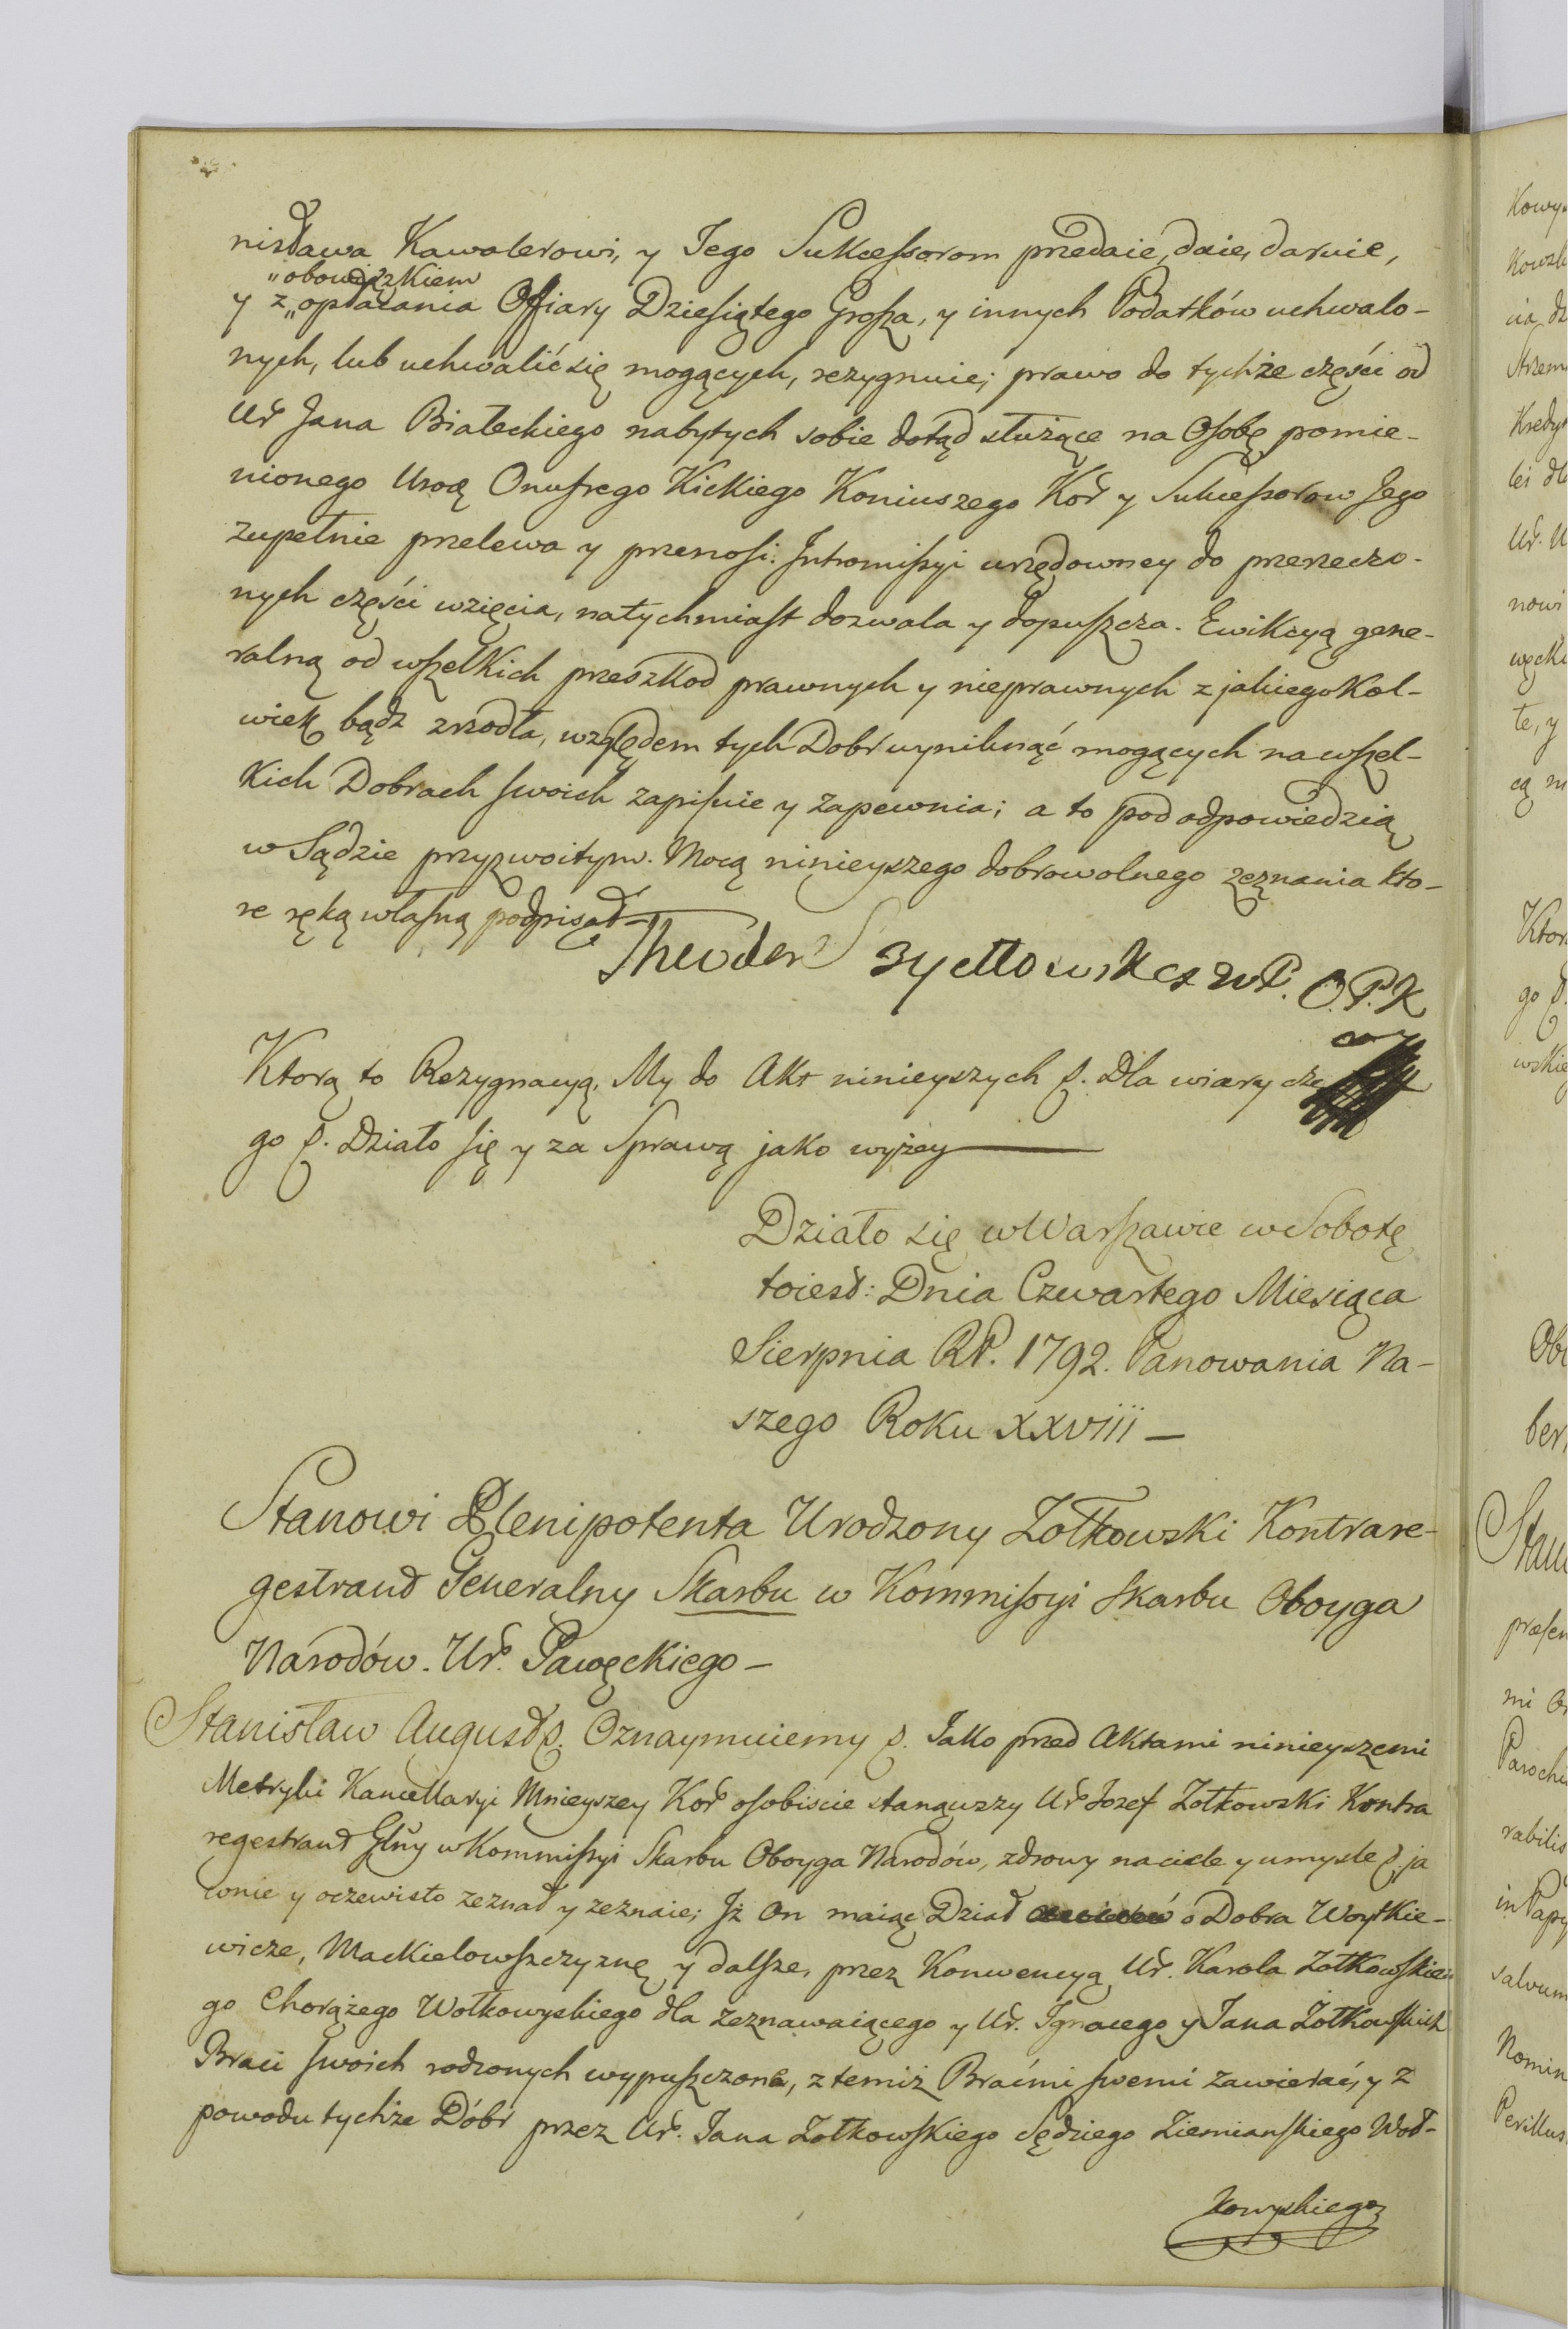 nisława Kawalerowi, y Jego Sukcessorom przedaie, daie, daruie,
„obowiązkiem
y z „opłacania Offiary Dziesiątego Grosza, y innych Podatków uchwalo-
nych, lub uchwalić się mogących, rezygnuie; prawo do tychże części od
Ur Jana Białeckiego nabytych sobie dotąd służące na Osobę pomie-
nionego Urodz Onufrego Kickiego Koniuszego Kor y Sukcessorow Jego
zupełnie przelewa y przenosi. Intromissyi urzędowney do przerzeczo-
nych części wzięcia, natychmiast dozwala y dopuszcza. Ewikcyą gene-
ralną od wszelkich przeszkod prawnych y nieprawnych z jakiegokol-
wiek bądz zrzodła, względem tych Dobr wyniknąć mogących na wszel-
kich Dobrach swoich zapisuie y zapewnia; a to pod odpowiedzią
w Sądzie przyzwoitym. Mocą ninieyszego dobrowolnego zeznania kto-
re ręką własną podpisał—
Theodor Szydłowski W. P. O. P. K
Ktorą to Rezygnacyą, My do Akt ninieyszych p. Dla wiary cze
go p. Działo się y za Sprawą jako wyżey—
Działo się w Warszawie w Sobotę
toiest: Dnia Czwartego Miesiąca
Sierpnia RP. 1792. Panowania Na-
szego Roku XXVIII—
Stanowi Plenipotenta Urodzony Zołkowski Kontrare-
gestrant Generalny Skarbu w Kommissyi Skarbu Oboyga
Narodów. Ur. Pawęckiego—
Stanisław August p. Oznaymuiemy p. Jako przed Aktami ninieyszemi
Metryki Kancellaryi Mnieyszey Kor osobiscie stanąwszy Ur Jozef Zołkowski Kontra
regestrant Glny w Kommissyi Skarbu Oboyga Narodów, zdrowy na ciele y umysle p. ja
wnie y oczewisto zeznał y zeznaie; Iż On maiąc Dział o Dobra Woytkie-
wicze, Mackielowszczyznę y dalsze, przez Konwencyą Ur. Karola Zołkowskie
go Chorążego Wołkowyskiego dla zeznawaiącego y Ur. Ignacego y Jana Zołkowskich
Braci swoich rodzonych wypuszczone, z temiż Braćmi swemi zawierać, y z
powodu tychże Dóbr przez Ur. Jana Zołkowskiego Sędziego Ziemianskiego Woł-
kowyskiego